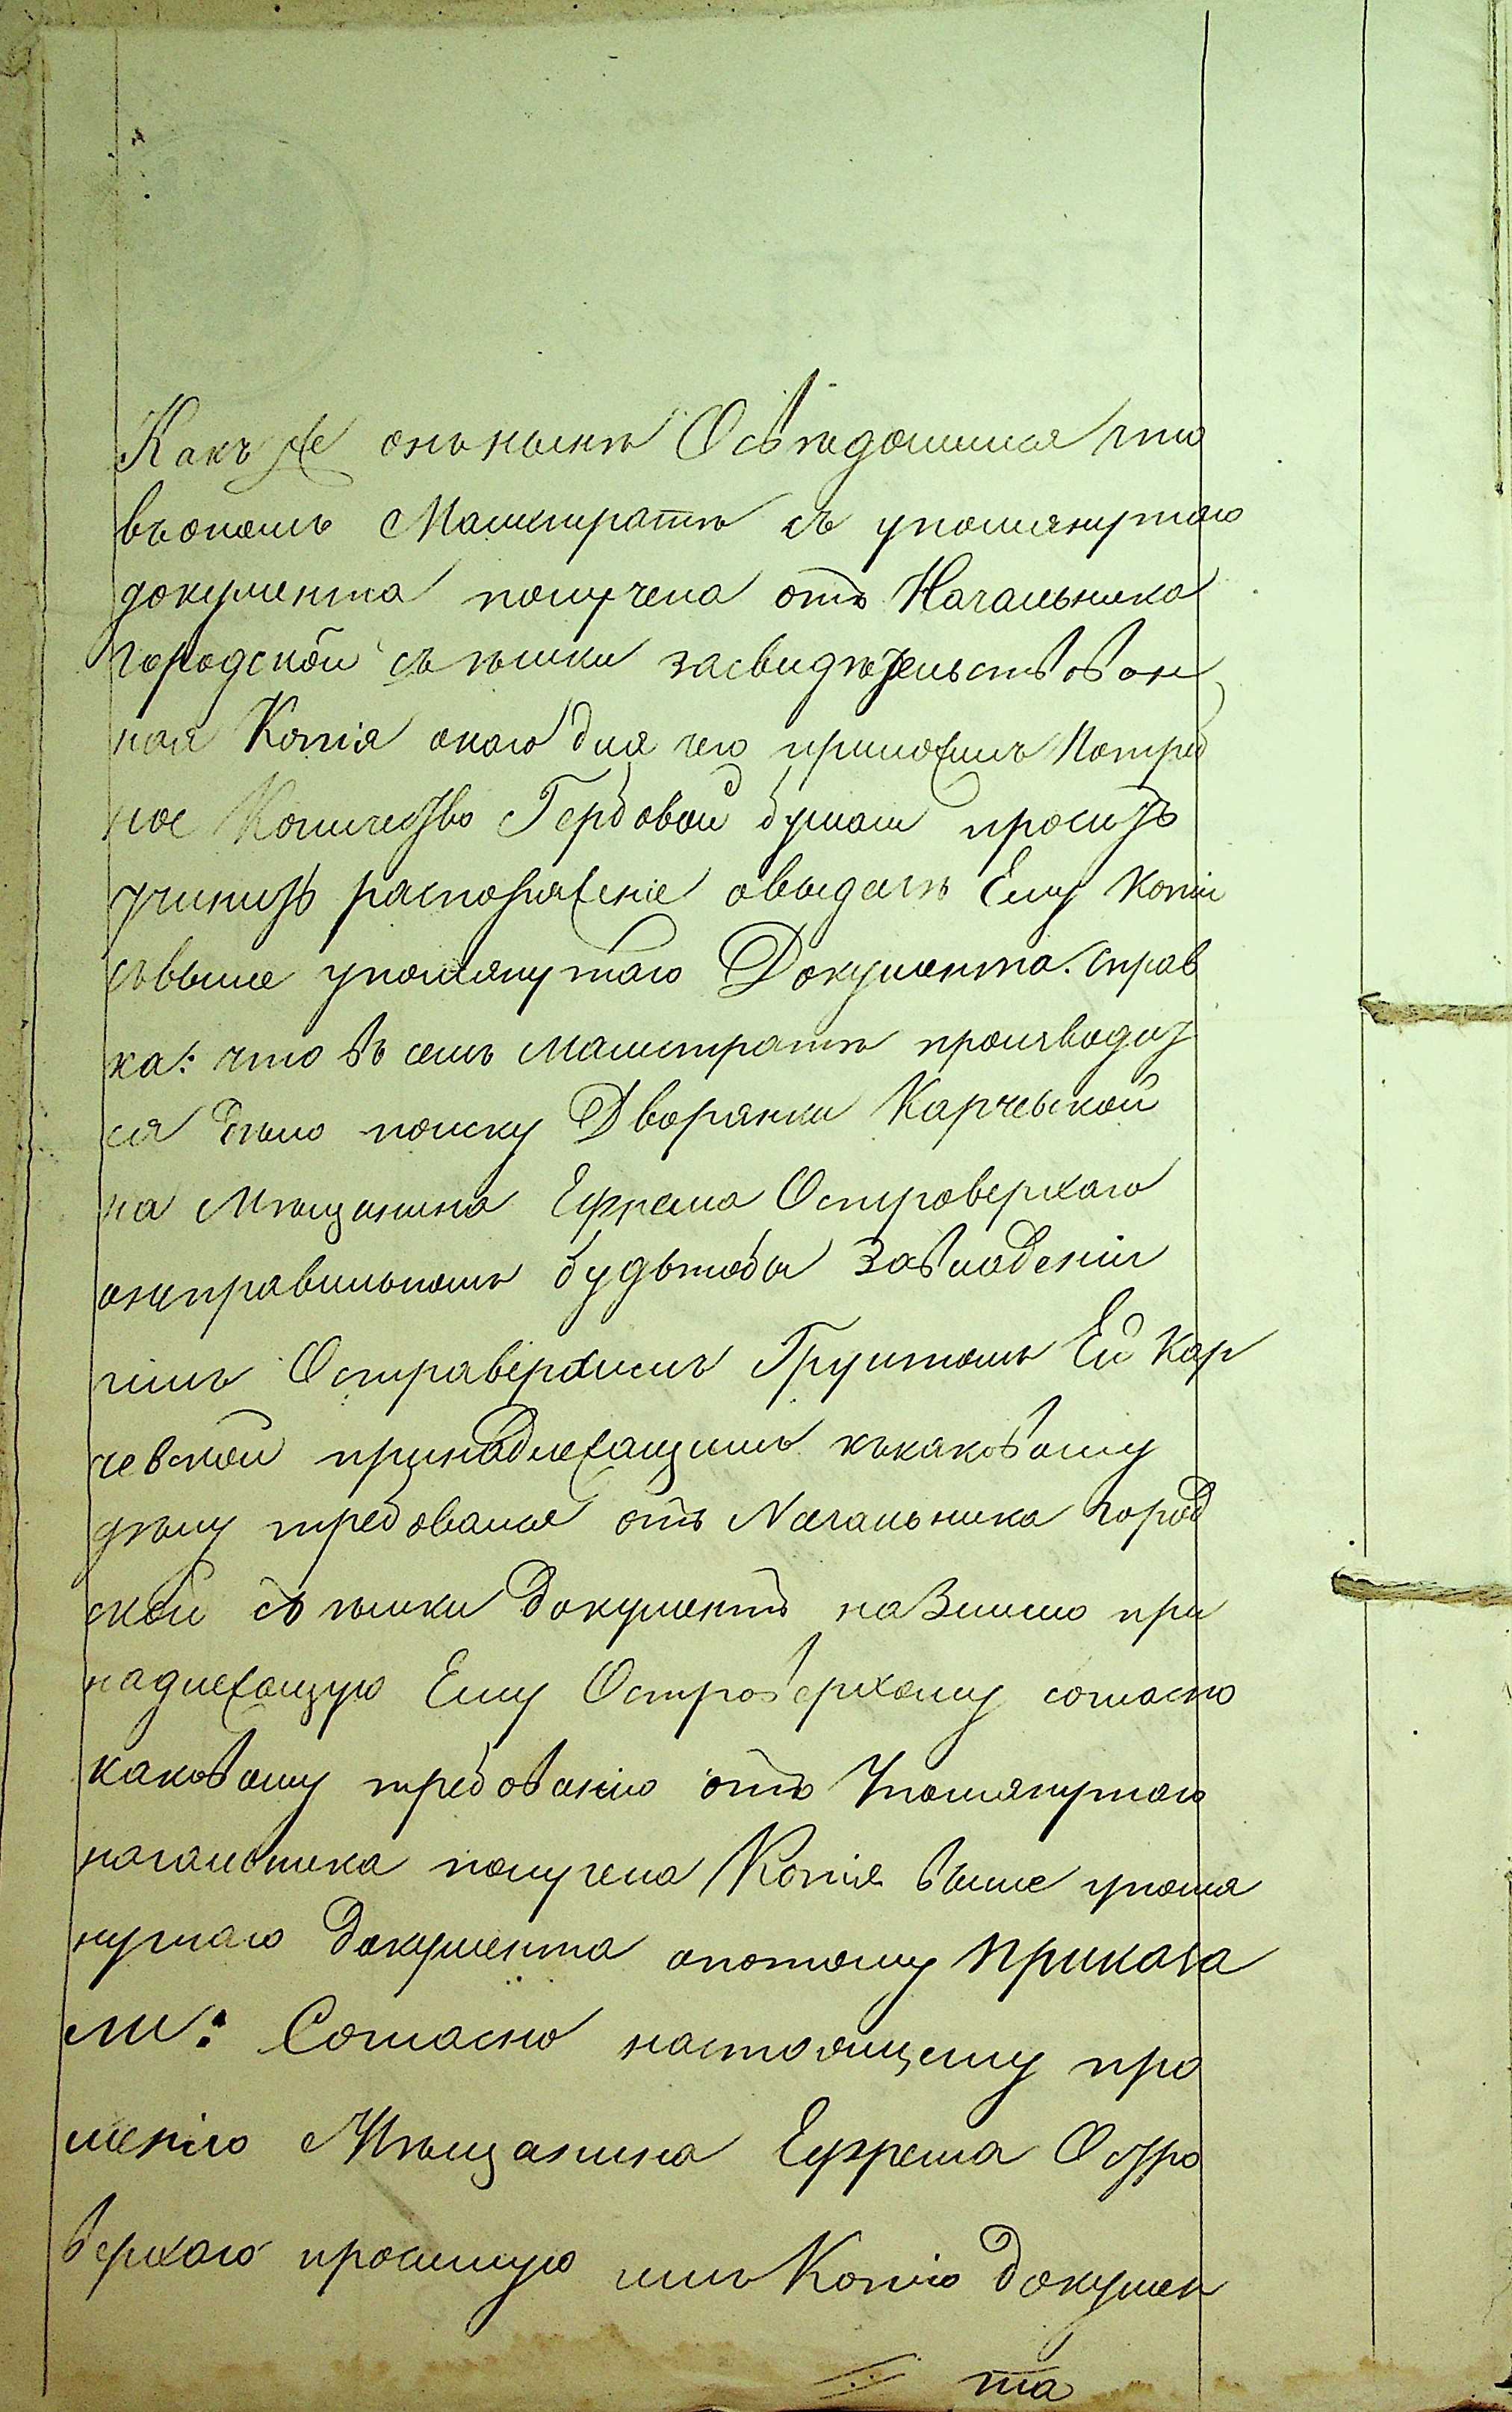 Какъ же онъ нынѣ Освѣдомился что
въономъ Магистратѣ съ упомянутаго
документа получена отъ Начальника
городской съѣмки засвидѣтельствован
ная Копія онаго для чего приложилъ Потреб
ное Количество Гербовой бумаги проситъ
учинить распоряженіе овыдачѣ Ему Копіи
съвыше упомянутаго Документа. Справ
ка: что въ семъ Магистратѣ производит
ся дѣло поиску Дворянки Карчевской
на Мѣщанина Ефрема Островерхаго
онеправильномъ будьтобы Завладеніи
имъ Островерхимъ Грунтомъ Ей Кар
чевской принадлежащимъ ккаковому
дѣлу требовался отъ Начальника город
ской съѣмки Документъ наЗимлю при
надлежащую Ему Островерхому согласно
каковому требованію отъ Упомянутаго
начальника получена Копія выше упомя
нутаго Документа апотому Приказа
ли: Согласно настоящему про
шенію Мѣщанина Ефрема Остро
верхаго просимую имъ Копію Докумен
та